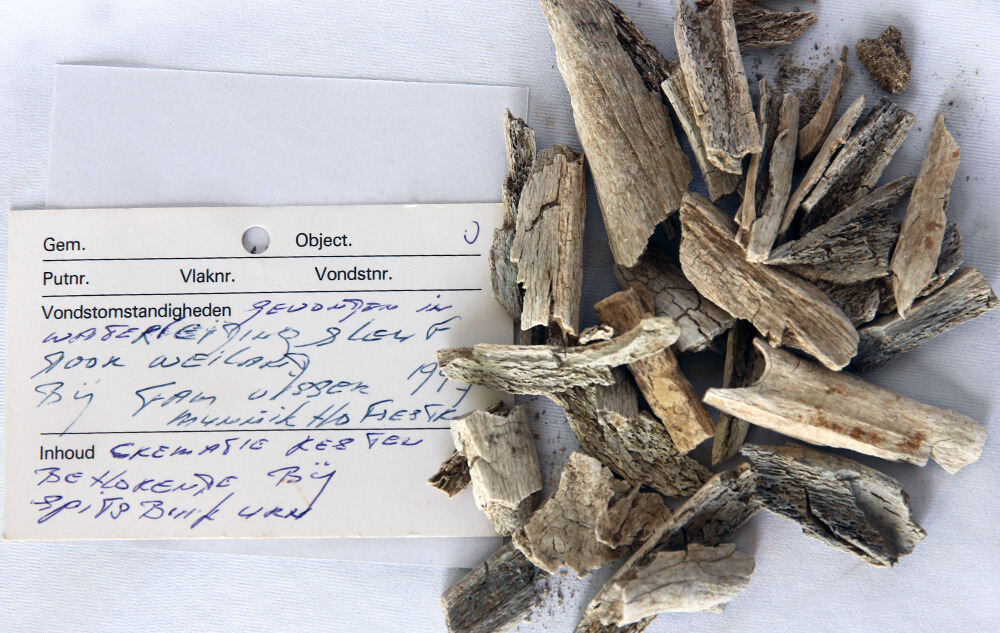 Gem. Object.
Putnr. Vlaknr. Vondstnr.
Vondstomstandigheden GEVONDEN in
WATERLEIDING SLEUF
DOOR WEILAND
Bij FAM VISSER
MUNNIKHOFJESTR
Inhoud CREMATIE RESTEN
BEHORENDE Bij
SPITSBUIK URN